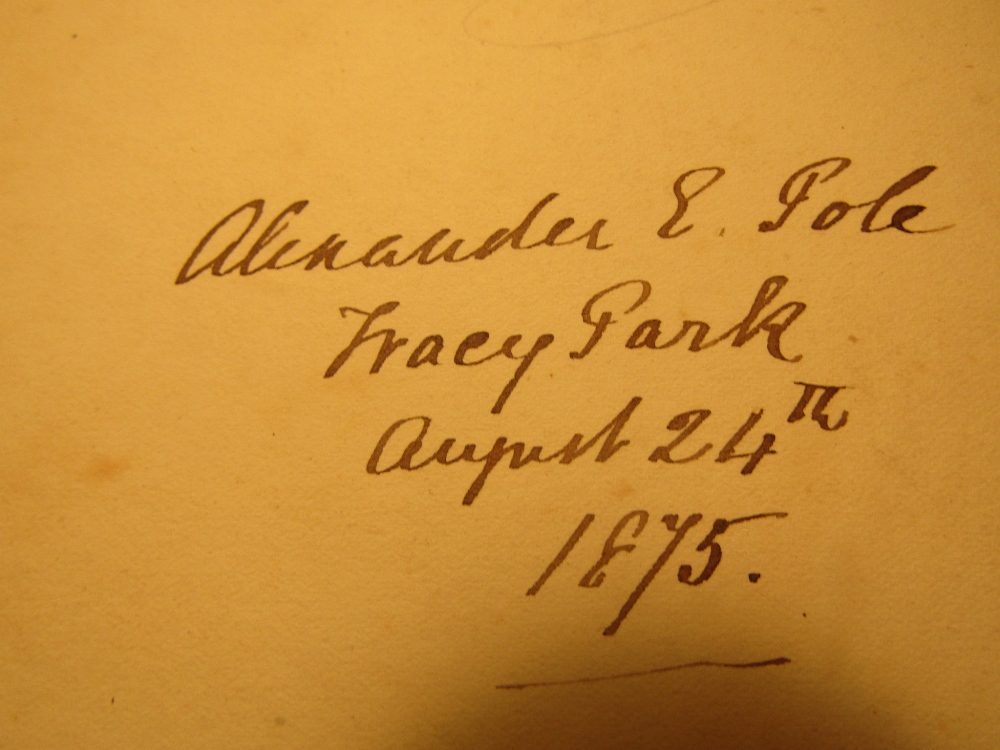 Alexander E. Pole
Tracy Park
August 24th
1875.